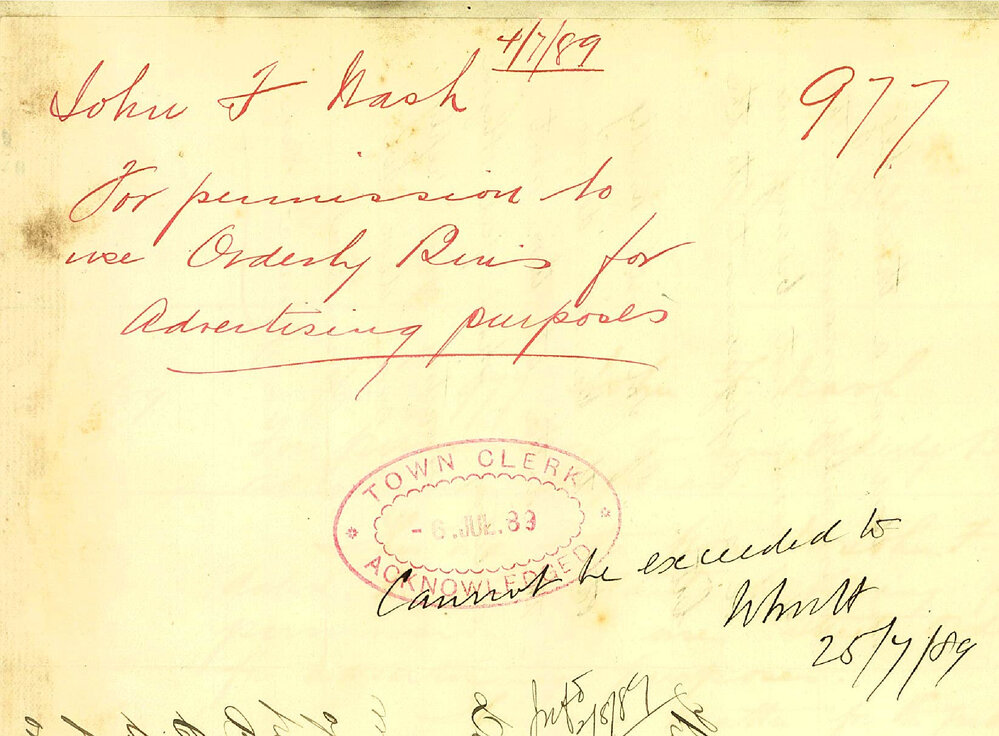 4/7/89
John F Nash
977
For permission to
use Orderly Bins for
Advertising purposes
TOWN CLERK
- 6. JUL. 89
ACKNOWLEDGED
Cannot be exceeded to
25/7/89
2/8/89